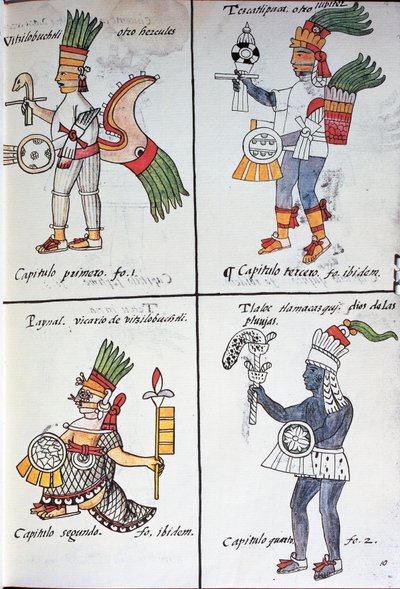 Vitzilobuchtli otro hercules
Capitulo primero. fo. 1.
Tezcatlipuca. otro iupiter
¶ Capitulo tercero. fo. ibidem.
Paynal. vicario de vitzilobuchtli
Capitulo segundo. fo. ibidem.
Tlaloc tlamacazqui. dios de las
pluuias.
Capitulo quarto fo. 2.
10